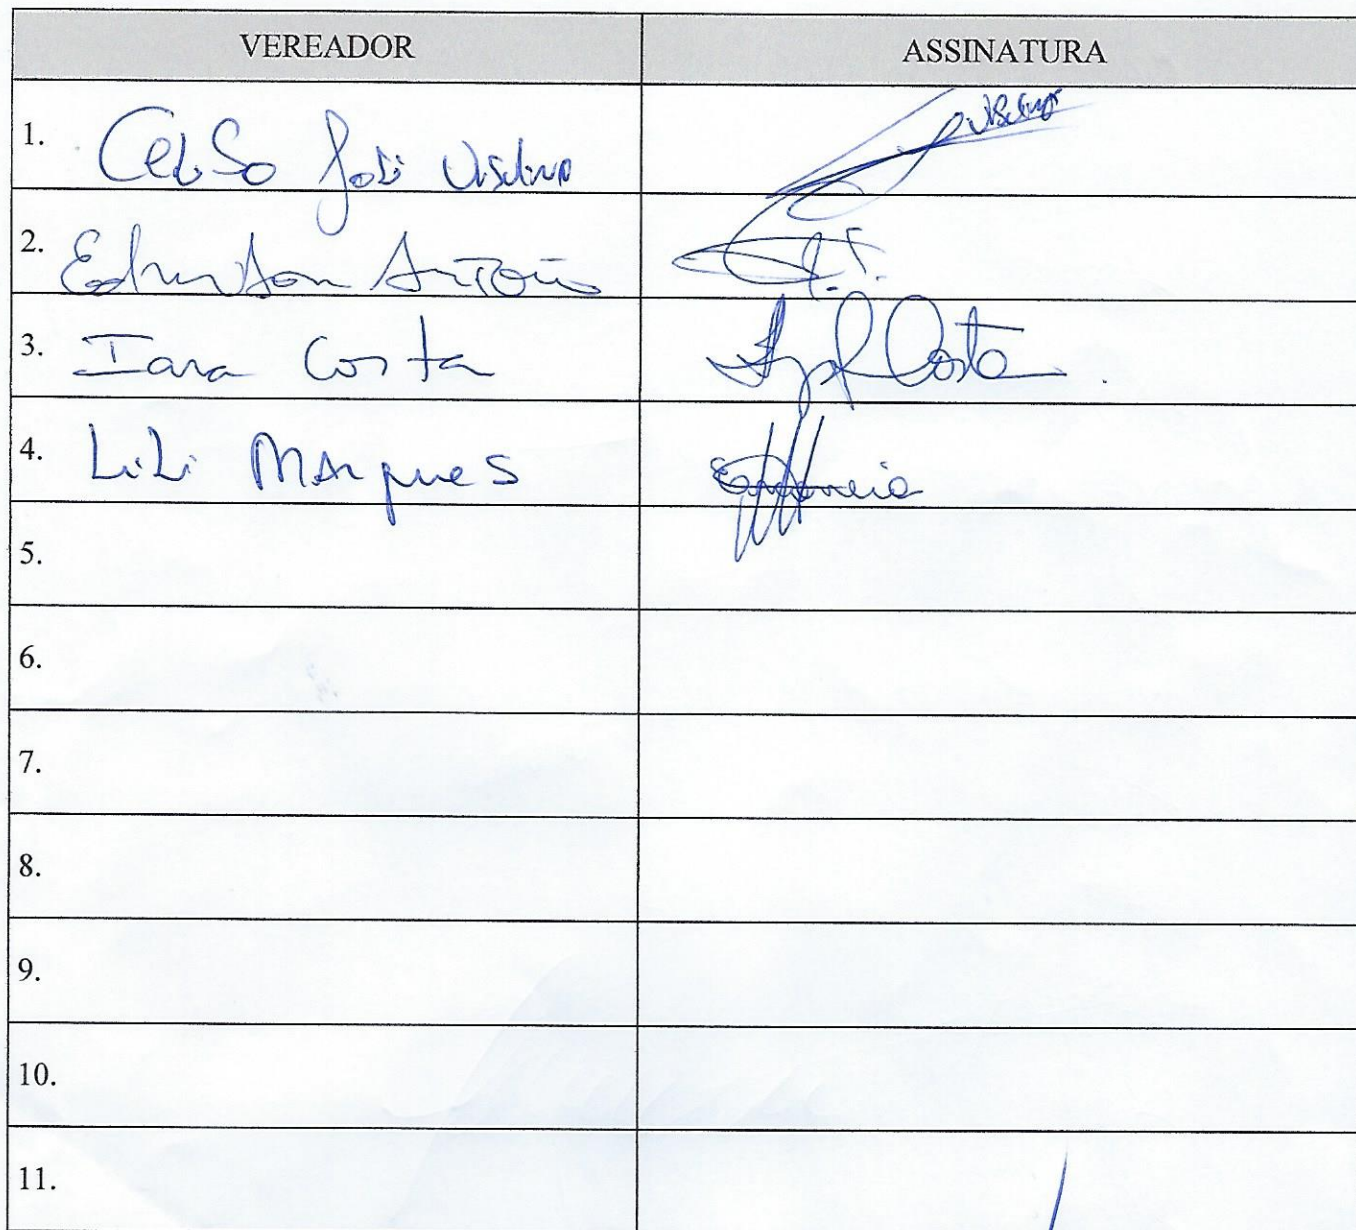 VEREADOR ASSINATURA
1. Celso José
2. Antônio
3. Iara Costa Costa
4. Lili Marques
5.
6.
7.
8.
9.
10.
11.